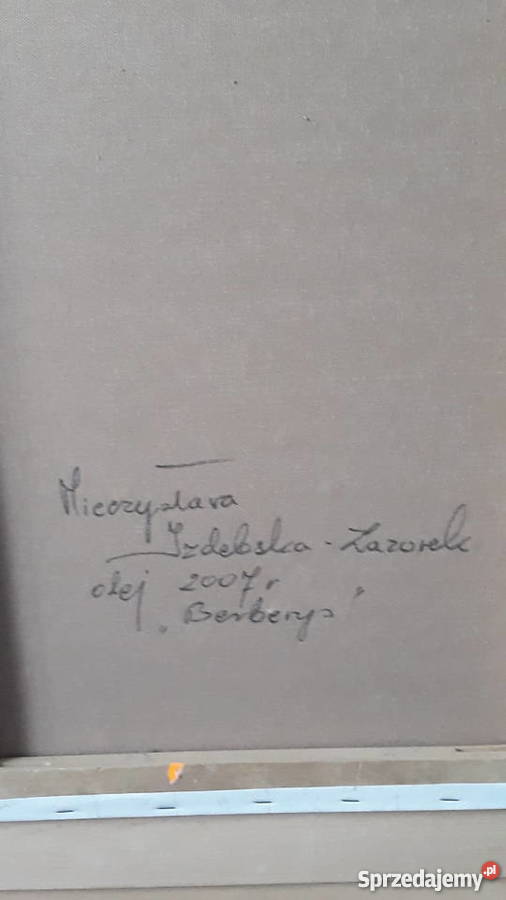 Mieczysława
Izdebska-Łazorek
olej 2007 r
„Berberys”
Sprzedajemy.pl